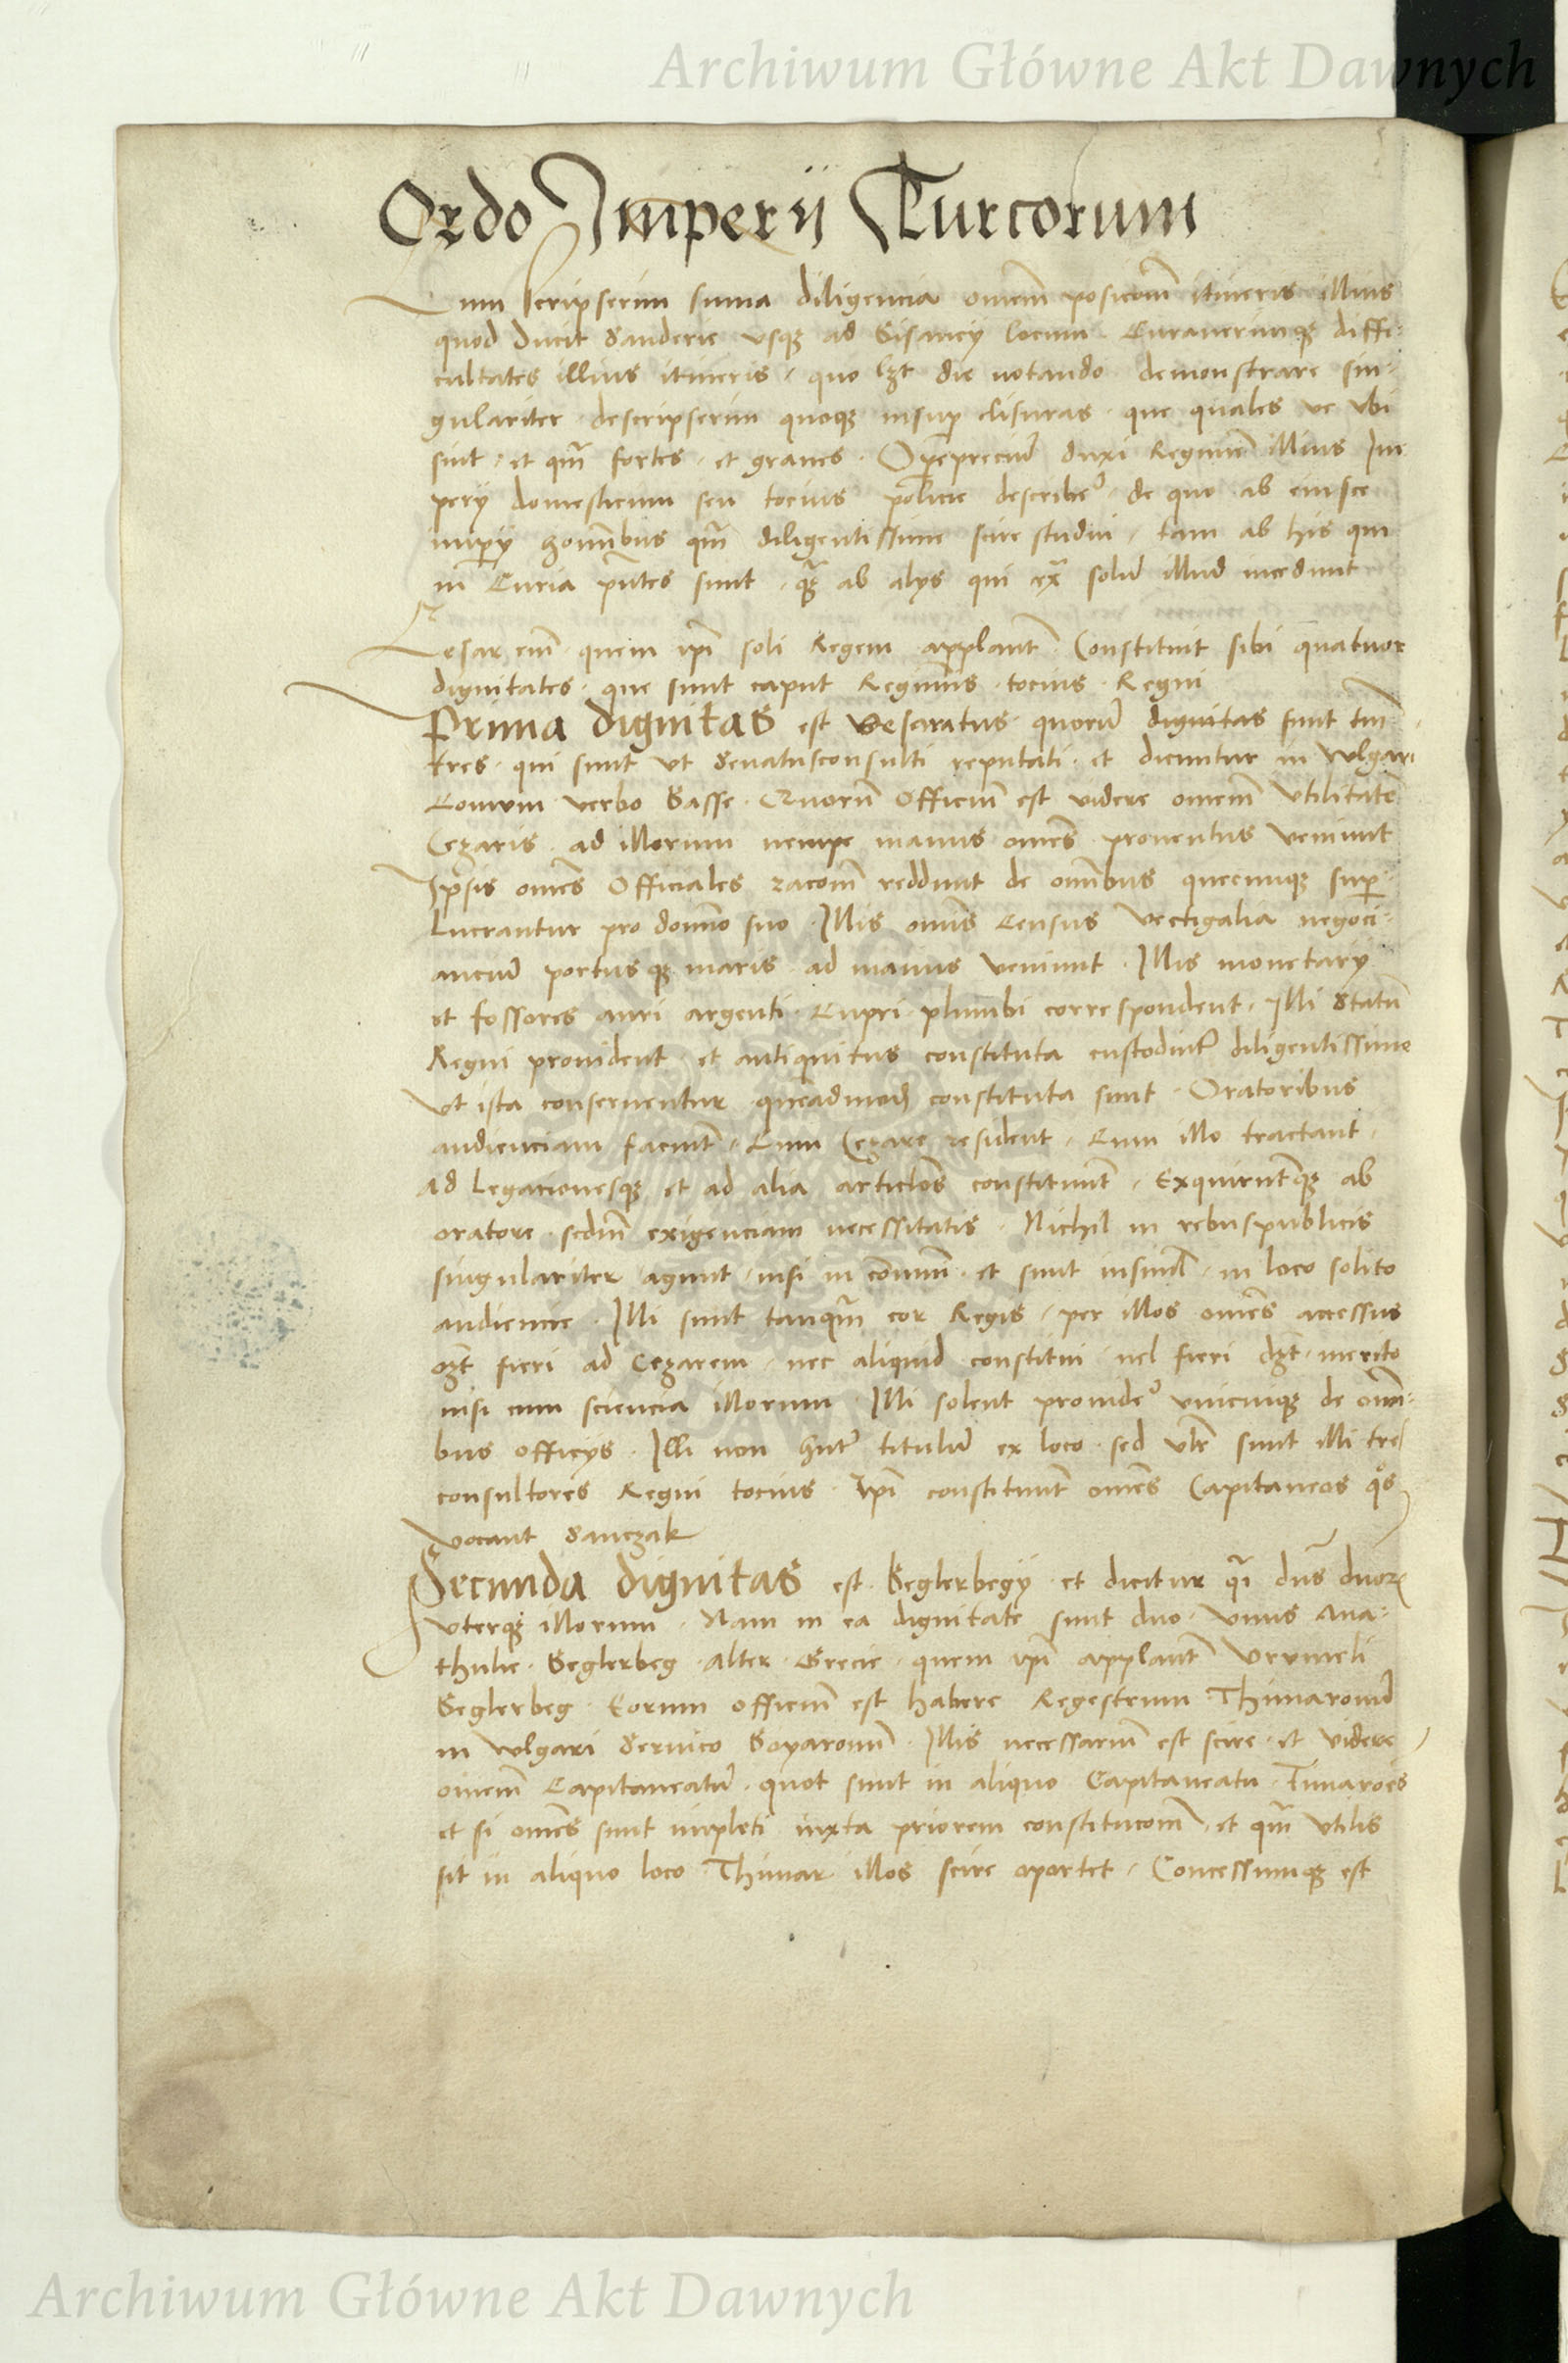 Archiwum Główne Akt Dawnych
Ordo Imperii Turcorum
Cum scripserim suma diligencia omem̄ posicom̄ itineris illius
quod ducit Sanderie usqȝ ad Bisancij locum. Curaverimqȝ diffi-
cultates illius itineris, quo lȝt die notando demonstrare sin-
gulariter. descripserim quoqȝ insup clisuras. que quales ve ubi
sint. et qm̄ fortes. et graves. Opeprecium duxi Regimen illius Im
perij domesticum seu tocius policie describe. de quo ab eiusce
imperij hominibus qm̄ diligentissime scire studui, tam ab his qui
in Curia pn̄tes sunt. qȝ ab alijs qui ex̄ solū illud incedunt
Cesar em̄ quem ipi soli Regem applant. Constituit sibi quatuor
dignitates. que sunt caput Regiminis tocius Regni
Prima dignitas est Vesaratus quorū dignitas sunt tm̄
tres. qui sunt ut Senatusconsulti reputati. et dicuntur in vulgari
eorum verbo Basse. Quorū Officiū est videre omem̄ utilitatē
Cezaris. ad illorum nempe manus omēs proventus veniunt
Ipsis omēs Officiales racom̄ reddunt de omībus quecunqȝ sup
lucrantur pro domīo suo. Illis omīs Census Vectigalia negoci-
anciū portusqȝ maris ad manus veniunt. Illis monetarij
et fossores auri argenti Cupri plumbi correspondent. Illi Statū
Regni provident. et antiquitus constituta custodiūt diligentissime
ut ista conserventur quēadmod constituta sunt. Oratoribus
audienciam faciūt. Cum Cezare resident. Cum illo tractant.
ad legacionesqȝ et ad alia articlos constituūt. Exquirūtqȝ ab
oratore. scdm̄ exigenciam necessitatis. Nichil in rebuspublicis
singulariter agunt. nisi in comūni. et sunt insimul. in loco solito
audiencie. Illi sunt tanqm̄ cor Regis, per illos omēs accessus
oȝt fieri ad Cezarem. nec aliquid constitui vel fieri dȝt. merito
nisi cum sciencia illorum. Illi solent provide unicuiqȝ de omī-
bus officijs. Illi non hnt titulū ex loco. sed vbr sunt illi tres
consultores Regni tocius. Ipi constituūt omēs Capitaneos qos
vocant Sanczak
Secunda dignitas est Beglerbegij et dicitur qi dns duorȝ
uterqȝ illorum. Nam in ea dignitate sunt duo. Unus Ana-
tholie. Beglerbeg. Alter Grecie. quem ipi applant Urumeli
Beglerbeg. Eorum officiū est habere Regestrum Thimaronū
in vulgari Servico Boyaronū. Illis necessariū est scire. et videre
omem̄ Capitaneatū. quot sunt in aliquo Capitaneatu. Timarões
et si omēs sunt impleti iuxta priorem constitucom̄. et qm̄ utilis
sit in aliquo loco Thimar illos scire oportet. Concessumqȝ est
Archiwum Główne Akt Dawnych